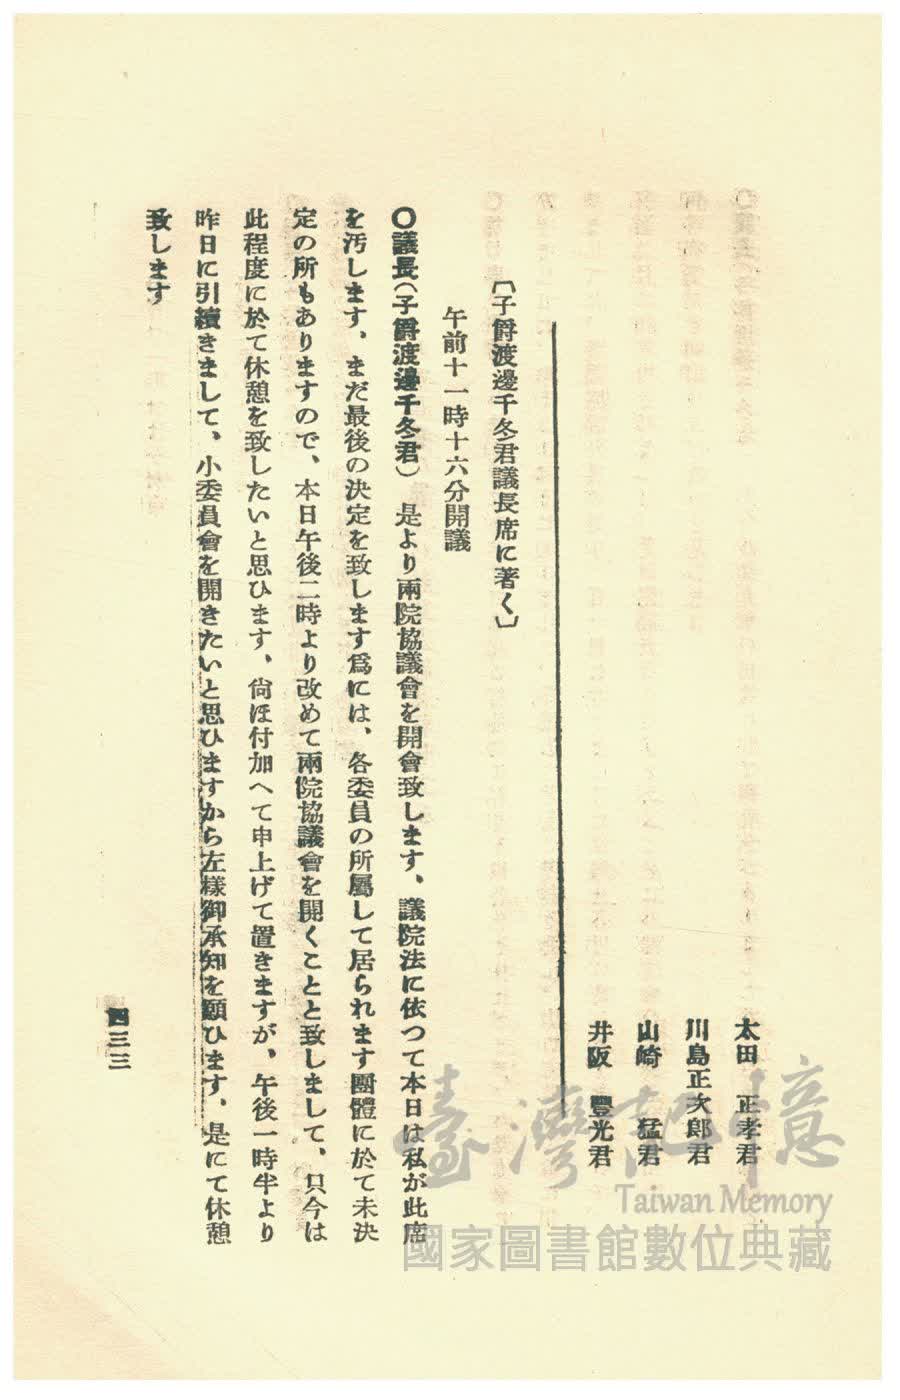 太田　正孝君
川島正次郎君
山崎　猛君
井阪　豐光君
〔子爵渡邊千冬君議長席に著く〕
午前十一時十六分開議
〇議長（子爵渡邊千冬君）　是より兩院協議會を開會致します、議院法に依つて本日は私が此席
を汚します、まだ最後の決定を致します爲には、各委員の所屬して居られます團體に於て未決
定の所もありますので、本日午後二時より改めて兩院協議會を開くことと致しまして、只今は
此程度に於て休憩を致したいと思ひます、尙ほ付加へて申上げて置きますが、午後一時半より
昨日に引續きまして、小委員會を開きたいと思ひますから左樣御承知を願ひます、是にて休憩
致します
四三三
臺灣記憶
Taiwan Memory
國家圖書館數位典藏